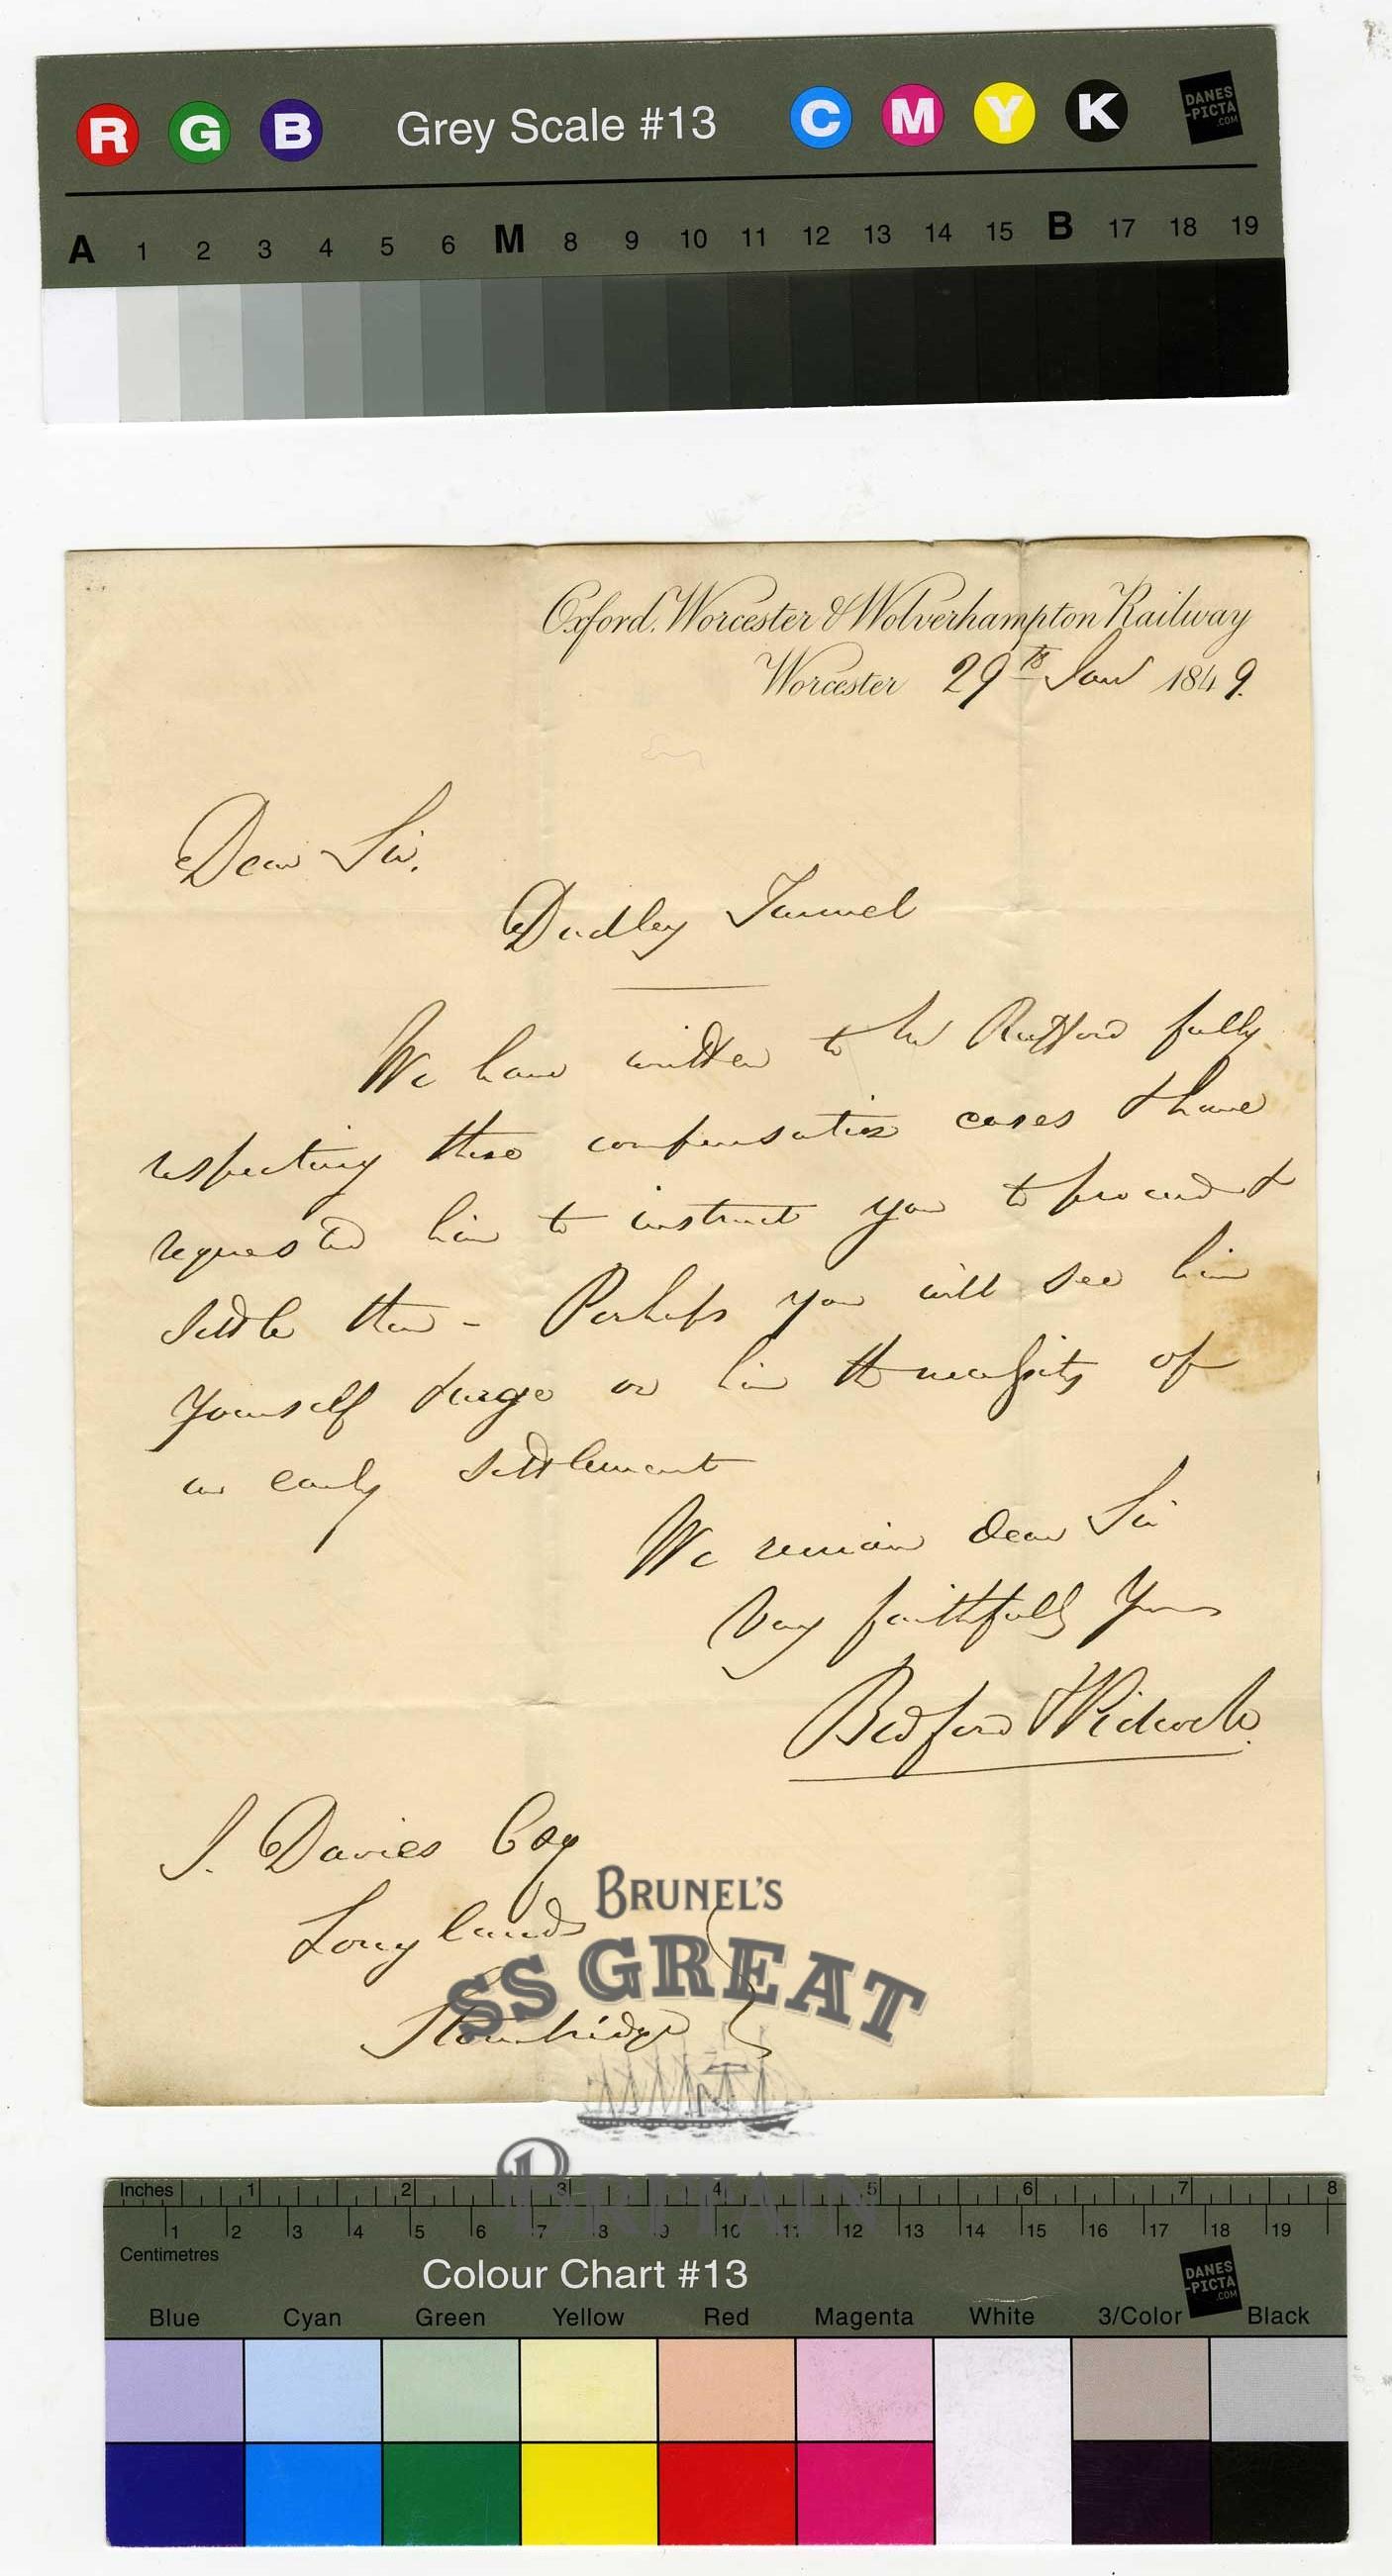 R G B Grey Scale #13 C M Y K DANES -PICTA .COM
A 1 2 3 4 5 6 M 8 9 10 11 12 13 14 15 B 17 18 19
Oxford, Worcester & Wolverhampton Railway
Worcester 29th Jany 1849.
Dear Sir,
Dudley Tunnel
We have written to Mr Rufford fully
respecting these compensation cases & have
requested him to instruct you to proceed &
settle them - Perhaps you will see him
yourself & urge on him the necessity of
an early settlement
We remain dear Sir
Very faithfully Yours
Bedford & Pidcock.
J. Davies Esq
Longlands
Stourbridge
BRUNEL'S
SS GREAT
BRITAIN
Inches 1 2 3 4 5 6 7 8
1 2 3 4 5 6 7 8 9 10 11 12 13 14 15 16 17 18 19
Centimetres
Colour Chart #13 DANES -PICTA .COM
Blue Cyan Green Yellow Red Magenta White 3/Color Black